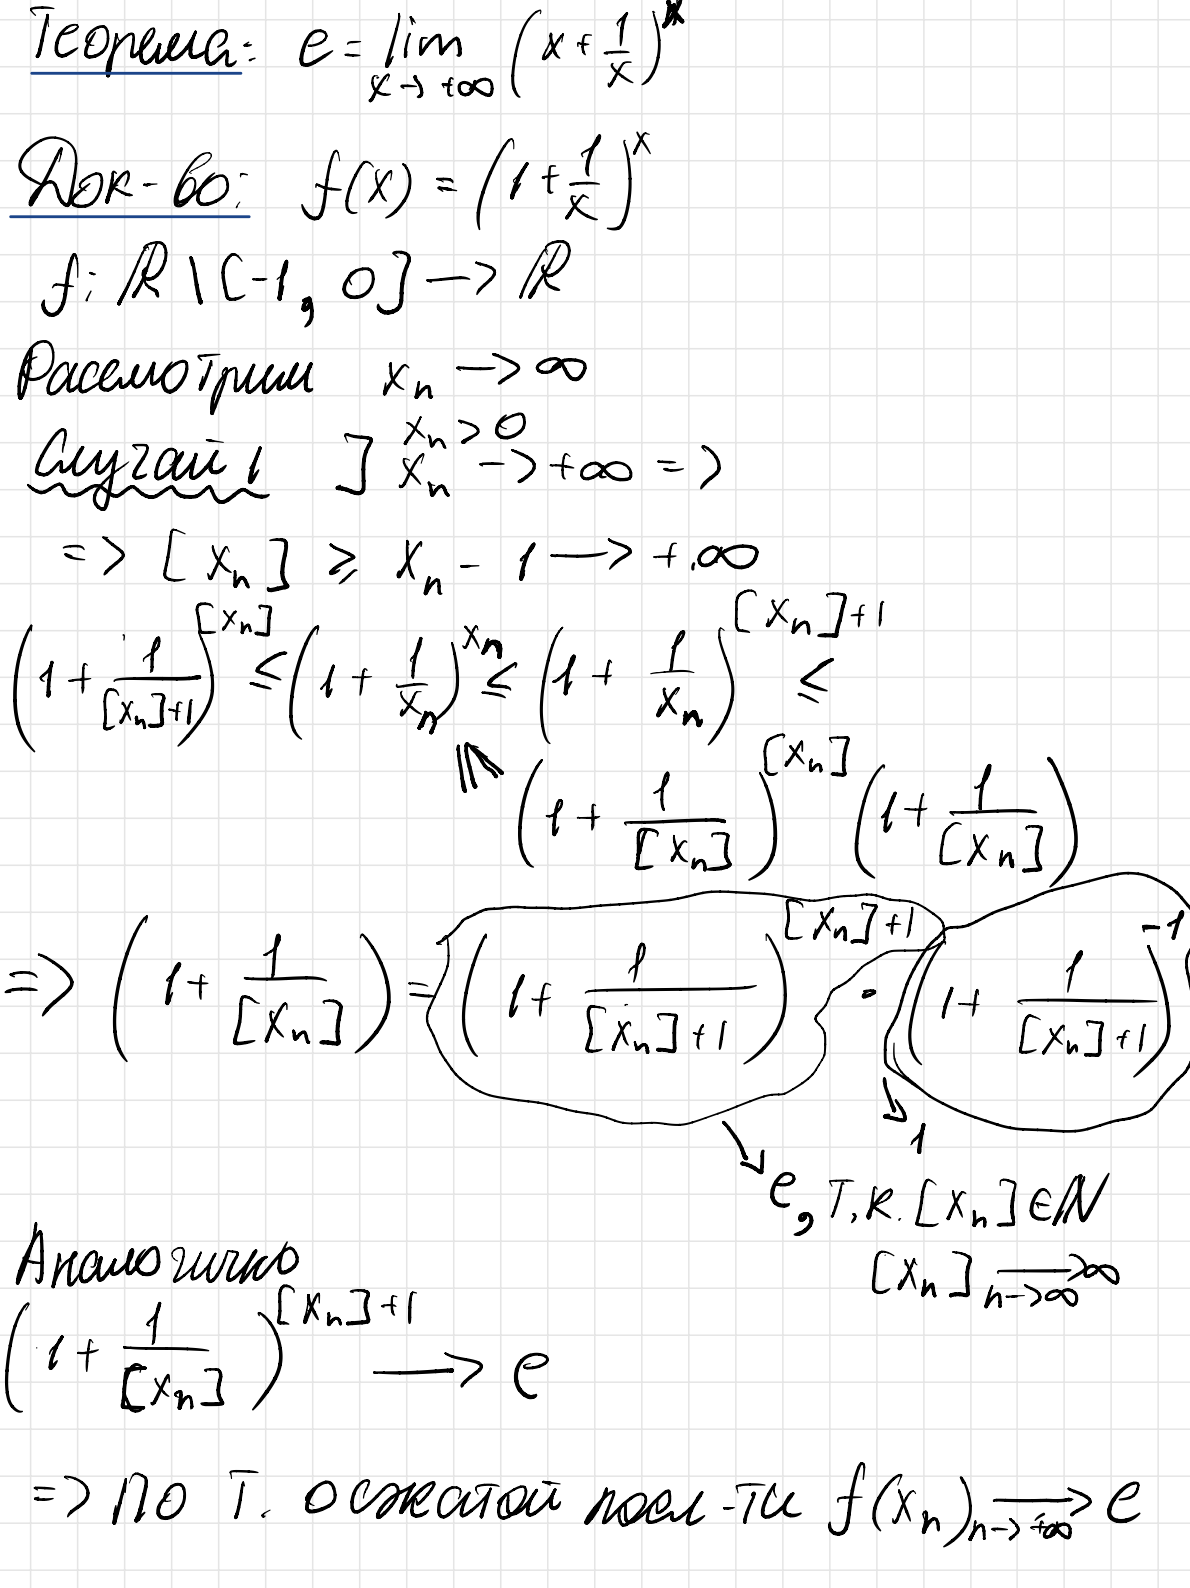 Теорема: e = lim (x + 1/x)^x
x → +∞
Док-во: f(x) = (1 + 1/x)^x
f: ℝ \ [-1, 0] → ℝ
Рассмотрим x_n → ∞
x_n > 0
Случай 1 ] x_n → +∞ =>
=> [x_n] ⩾ x_n - 1 → +∞
(1 + 1/([x_n]+1))^[x_n] ≤ (1 + 1/x_n)^x_n ≤ (1 + 1/x_n)^([x_n]+1) ≤
(1 + 1/[x_n])^[x_n] (1 + 1/[x_n])
=> (1 + 1/[x_n]) = (1 + 1/([x_n]+1))^([x_n]+1) · (1 + 1/([x_n]+1))^-1
↘ 1
↘ e, т.к. [x_n] ∈ ℕ
[x_n] → ∞
n→∞
Аналогично
(1 + 1/[x_n])^([x_n]+1) → e
=> по т. о сжатой посл-ти f(x_n) → e
n→+∞